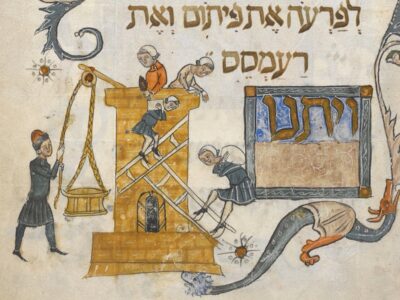 לְפַרְעֹה אֶת פִיתוֹם וְאֶת
רַעַמְסֵס
ויתנו